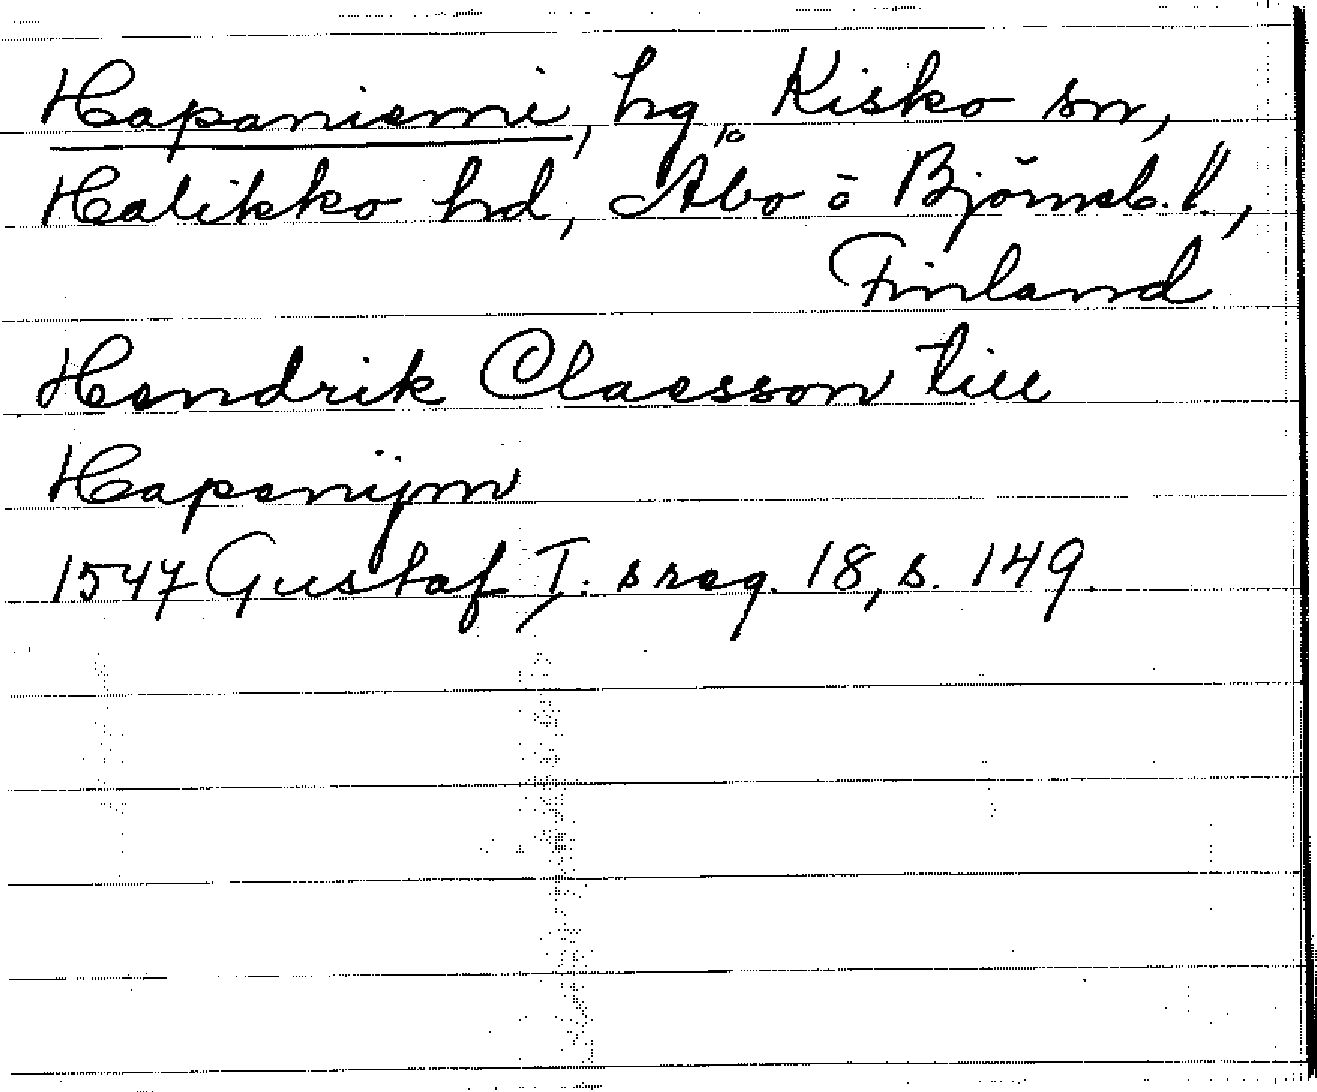 Hapaniemi, hg, Kisko sn,
Halikko hd, Åbo o Björneb. l.,
Finland
Hendrik Claesson till
Hapanijm
1547 Gustaf I:s reg. 18, s. 149.